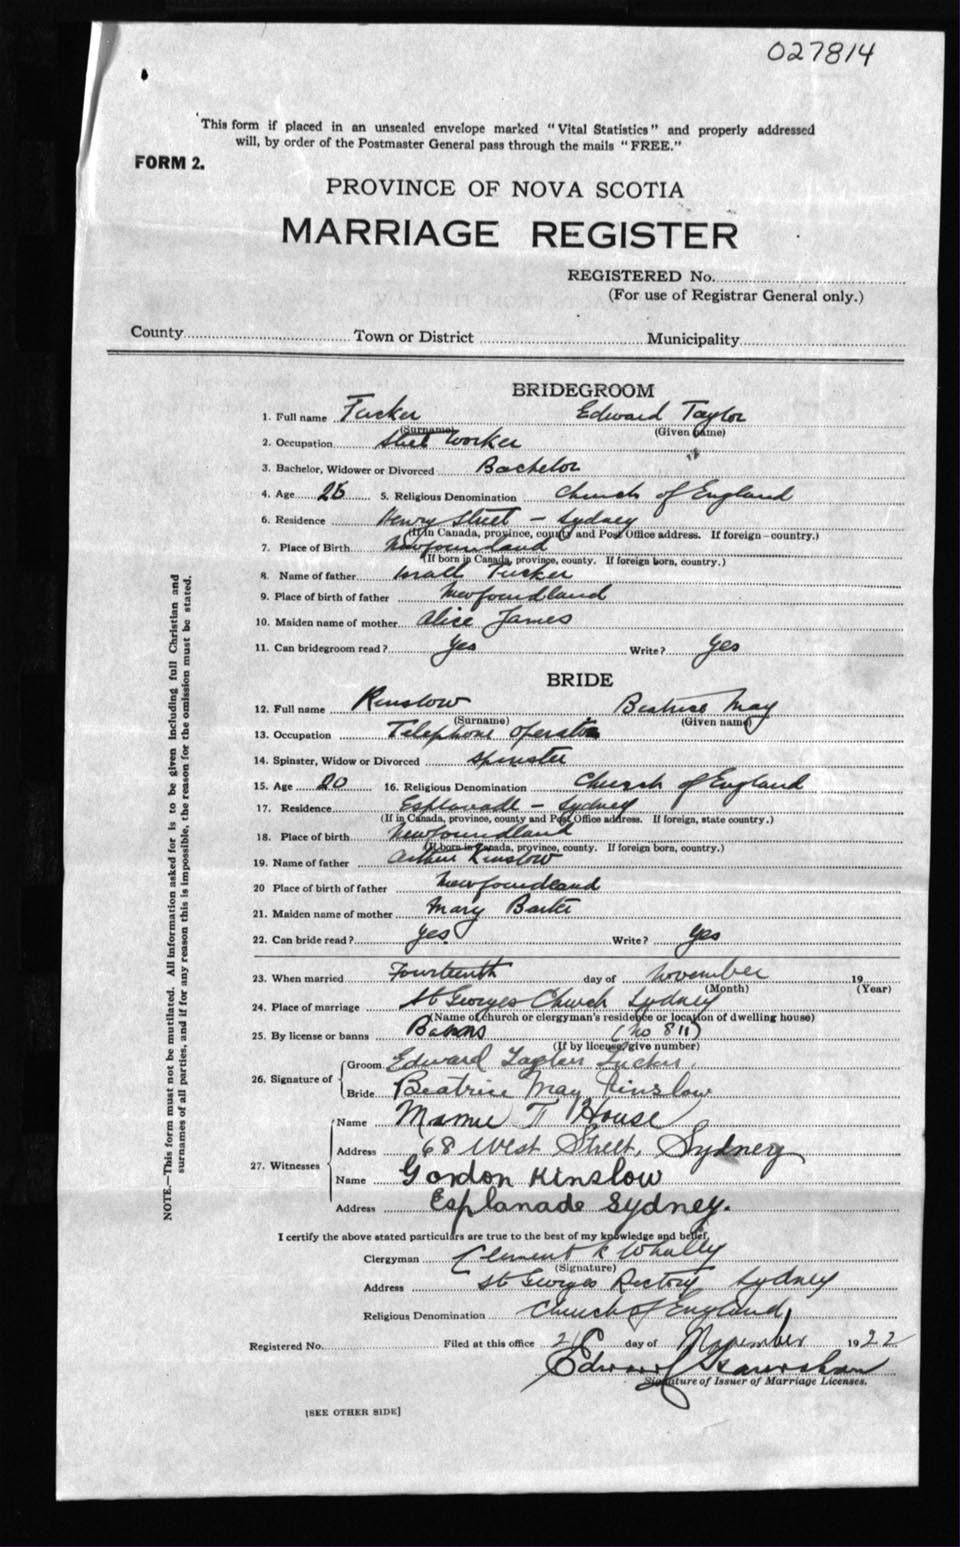 027814
This form if placed in an unsealed envelope marked "Vital Statistics" and properly addressed
will, by order of the Postmaster General pass through the mails "FREE."
FORM 2.
PROVINCE OF NOVA SCOTIA
MARRIAGE REGISTER
REGISTERED No.
(For use of Registrar General only.)
County Town or District Municipality
BRIDEGROOM
1. Full name Tucker Edward Taylor
(Surname) (Given name)
2. Occupation Steel Worker
3. Bachelor, Widower or Divorced Bachelor
4. Age 5. Religious Denomination Church of England
6. Residence Henry Street - Sydney
(If in Canada, province, county and Post Office address. If foreign-country.)
7. Place of Birth Newfoundland
(If born in Canada, province, county. If foreign born, country.)
8. Name of father Tucker
9. Place of birth of father Newfoundland
10. Maiden name of mother Alice James
11. Can bridegroom read? Yes Write? Yes
BRIDE
12. Full name Kinslow Beatrice May
(Surname) (Given name)
13. Occupation Telephone Operator
14. Spinster, Widow or Divorced Spinster
15. Age 20 16. Religious Denomination Church of England
17. Residence Esplanade - Sydney
(If in Canada, province, county and Post Office address. If foreign, state country.)
18. Place of birth Newfoundland
(If born in Canada, province, county. If foreign born, country.)
19. Name of father Arthur Kinslow
20 Place of birth of father Newfoundland
21. Maiden name of mother Mary
22. Can bride read? yes Write? yes
23. When married Fourteenth day of November 19
(Month) (Year)
24. Place of marriage St Georges Church Sydney
(Name of church or clergyman's residence or location of dwelling house)
25. By license or banns Banns (No 811)
(If by license, give number)
26. Signature of Groom Edward Taylor Tucker
Bride Beatrice May Kinslow
27. Witnesses Name T House
Address 68 West Street, Sydney
Name Gordon Kinslow
Address Esplanade Sydney.
I certify the above stated particulars are true to the best of my knowledge and belief,
Clergyman Clement
(Signature)
Address St Georges Rectory Sydney
Religious Denomination Church of England
Registered No. Filed at this office day of November 1922
Edward
Signature of Issuer of Marriage Licenses.
[SEE OTHER SIDE]
NOTE.—This form must not be mutilated. All information asked for is to be given including full Christian and
surnames of all parties, and if for any reason this is impossible, the reason for the omission must be stated.